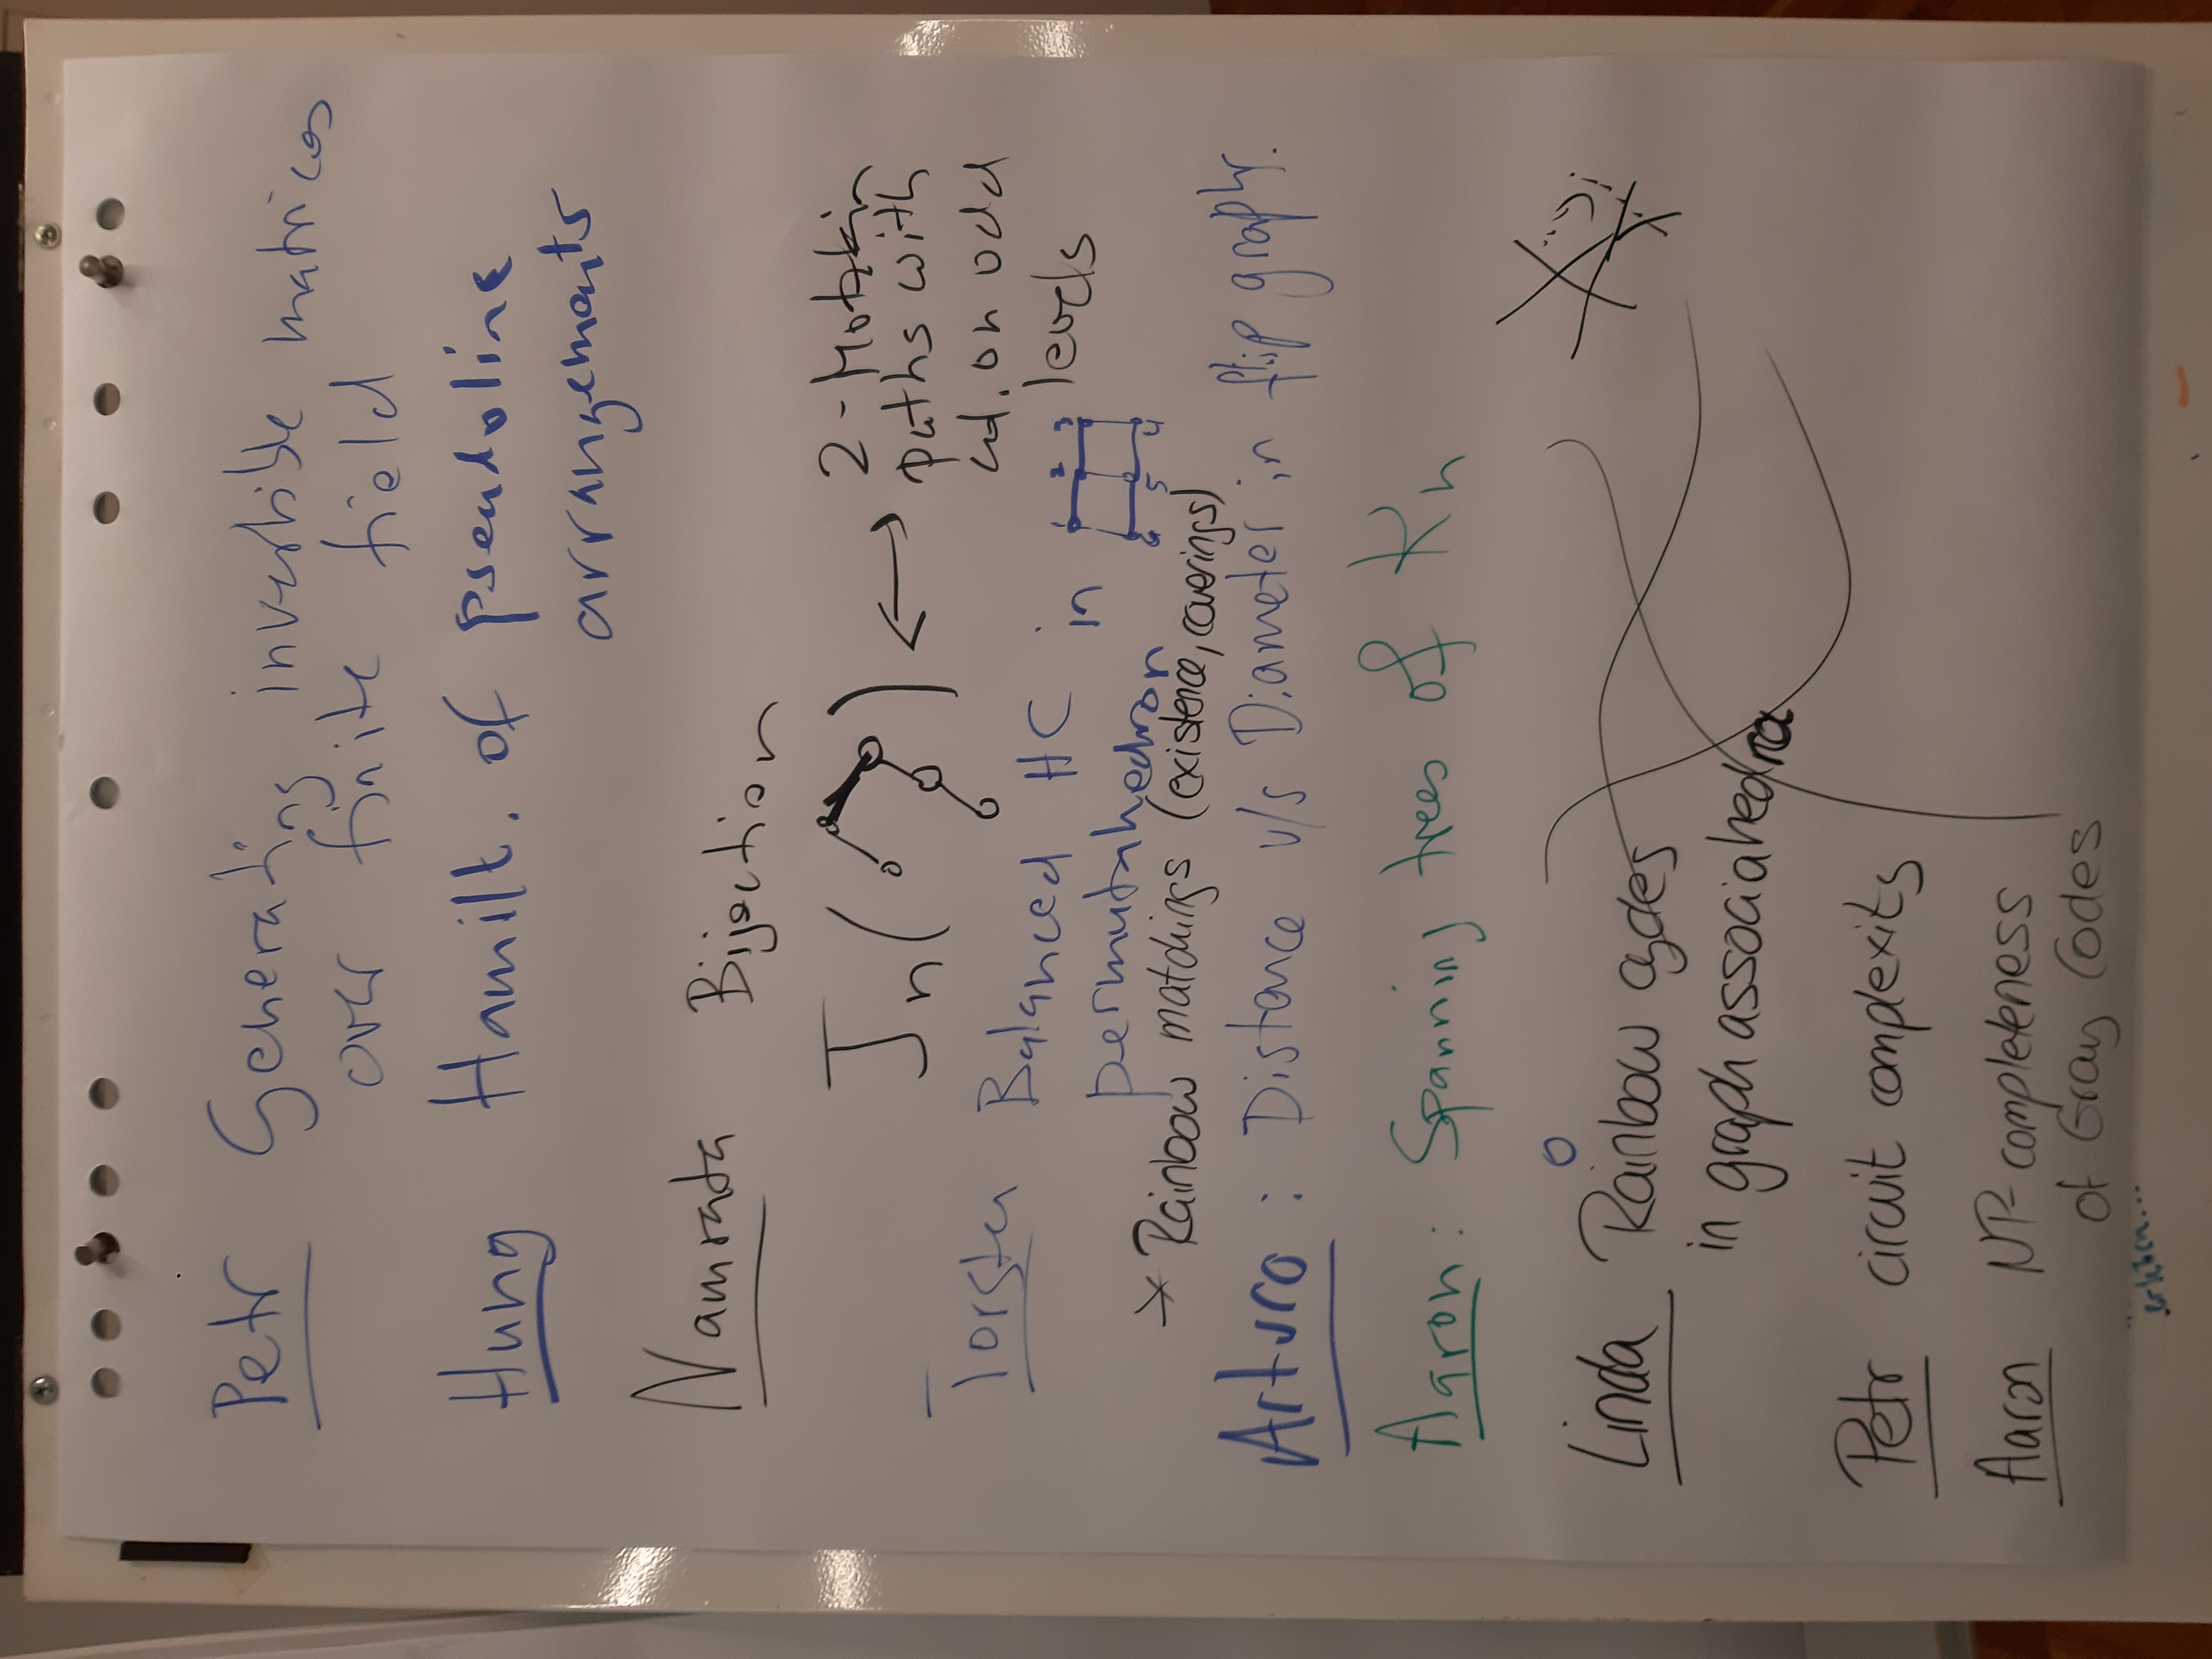 Petr Generating invertible matrices
over finite field
Hung Hamilt. of pseudoline
arrangements
Namrata Bijection
Jn ( ) ↔ 2-Motzkin
paths with
on odd
levels
Torsten Balanced HC in
permutahedron
1 2 3 4 5 6
* Rainbow matchings (existence, coverings)
Arturo: Distance v/s Diameter in flip graphs.
Aaron: Spanning trees of Kn
Linda Rainbow cycles
in graph associahedra
Petr circuit complexity
Aaron NP-completeness
of Gray Codes